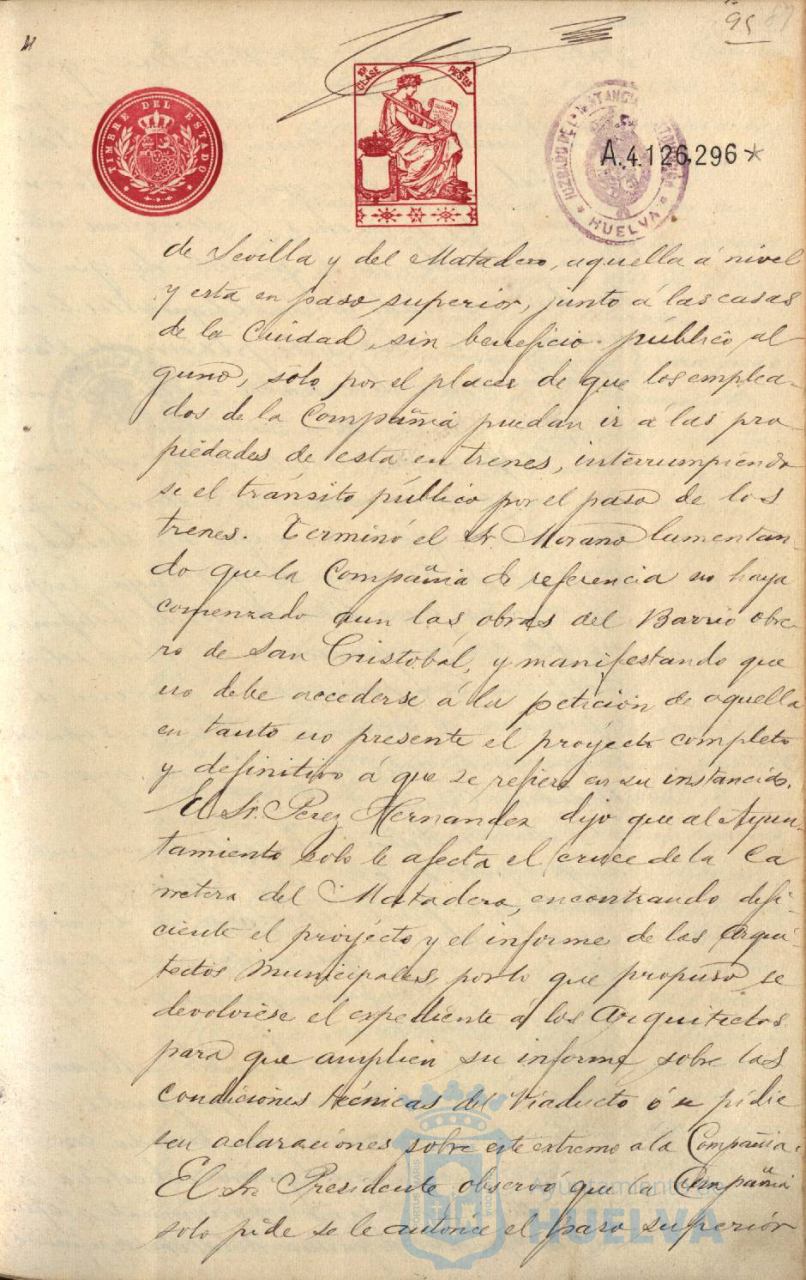 95 87
TIMBRE DEL ESTADO
10ª CLASE 2 PESTAS
JUZGADO DE 1ª INSTANCIA
HUELVA
A.4.126,296*
de Sevilla y del Matadero, aquella á nivel
y esta en paso superior, junto á las casas
de la Ciudad, sin beneficio público al
guno, solo por el placer de que los emplea-
dos de la Compañia puedan ir á las pro
piedades de esta en trenes, interrumpiendo
se el tránsito público por el paso de los
trenes. Terminó el Sr. Morano lamentan-
do que la Compañia de referencia no haya
comenzado aun las obras del Barrio obre
ro de San Cristobal, y manifestando que
no debe accederse á la petición de aquella
en tanto no presente el proyecto completo
y definitivo á que se refiere en su instancia.
El Sr. Perez Hernandez dijo que al Ayun-
tamiento solo le afecta el cruce de la Ca
rretera del Matadero, encontrando defi-
ciente el proyecto y el informe de los Arqui-
tectos Municipales, por lo que propuso se
devolviese el expediente á los Arquitectos
para que amplien su informe sobre las
condiciones técnicas del Viaducto ó se pidie
sen aclaraciones sobre este extremo a la Compañia.
El Sr. Presidente observó que la Compañia
solo pide se le autorice el paso superior
Ayuntamiento de
HUELVA